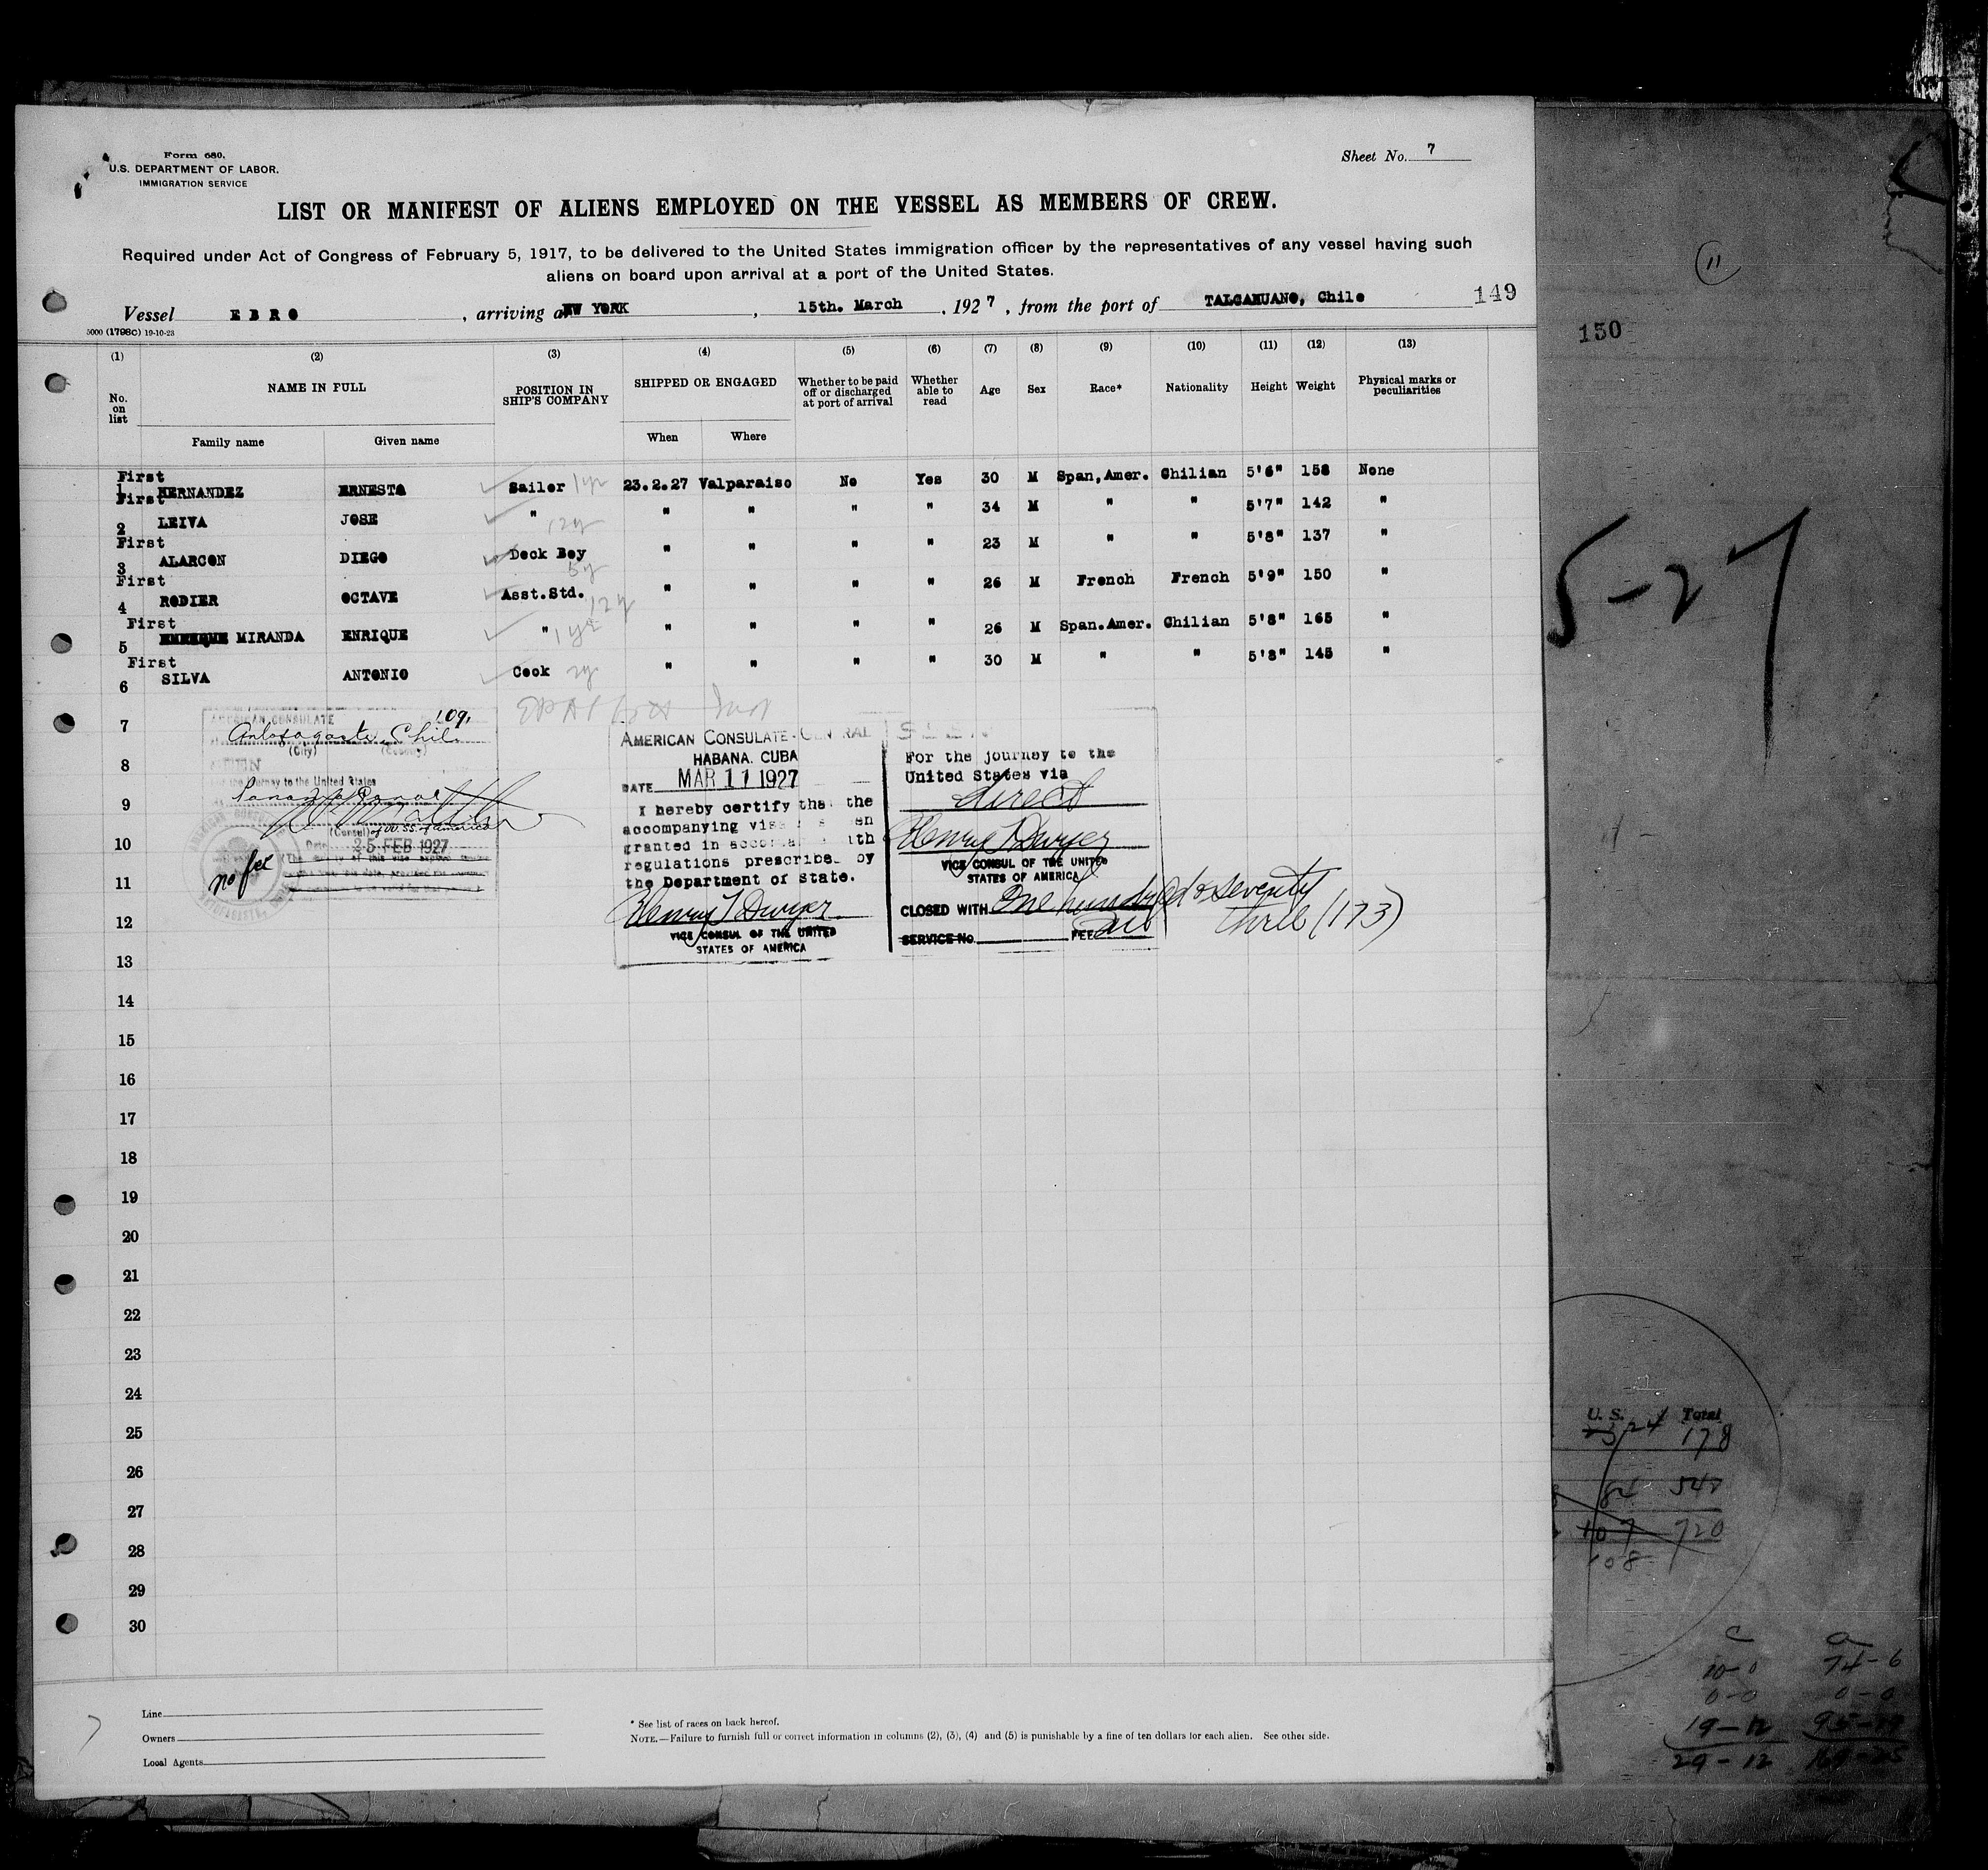 Form 680.
U.S. DEPARTMENT OF LABOR.
IMMIGRATION SERVICE
Sheet No. 7
LIST OR MANIFEST OF ALIENS EMPLOYED ON THE VESSEL AS MEMBERS OF CREW.
Required under Act of Congress of February 5, 1917, to be delivered to the United States immigration officer by the representatives of any vessel having such
aliens on board upon arrival at a port of the United States.
149
Vessel EBRO, arriving at NEW YORK, 15th. March, 1927, from the port of TALCAHUANO, Chile
5000 (1798C) 19-10-23
(1) (2) (3) (4) (5) (6) (7) (8) (9) (10) (11) (12) (13)
No. on list NAME IN FULL POSITION IN SHIP'S COMPANY SHIPPED OR ENGAGED Whether to be paid off or discharged at port of arrival Whether able to read Age Sex Race* Nationality Height Weight Physical marks or peculiarities
Family name Given name When Where
First
1 HERNANDEZ ERNESTO Sailor 1yr 23.2.27 Valparaiso No Yes 30 M Span,Amer. Chilian 5'6" 158 None
First
2 LEIVA JOSE " 12y " " " " 34 M " " 5'7" 142 "
First
3 ALARCON DIEGO Deck Boy 5y " " " " 23 M " " 5'8" 137 "
First
4 RODIER OCTAVE Asst.Std. 12y " " " " 26 M French French 5'9" 150 "
First
5 MIRANDA ENRIQUE " 1yr " " " " 26 M Span.Amer. Chilian 5'8" 165 "
First
6 SILVA ANTONIO Cook 2y " " " " 30 M " " 5'8" 145 "
7
8
9
10
11
12
13
14
15
16
17
18
19
20
21
22
23
24
25
26
27
28
29
30
AMERICAN CONSULATE 109.
Antofagasta, Chile
(City) (Country)
SEEN
For the journey to the United States
Panama Canal
(Consul) of U.SS. of America
Date 25 FEB 1927
no fee
AMERICAN CONSULATE-GENERAL
HABANA, CUBA
DATE MAR 11 1927
I hereby certify that the
accompanying visa has been
granted in accordance with
regulations prescribed by
the Department of State.
Henry T Dwyer
VICE CONSUL OF THE UNITED
STATES OF AMERICA
SEEN
For the journey to the
United States via
direct
Henry T Dwyer
VICE CONSUL OF THE UNITED
STATES OF AMERICA
CLOSED WITH One hundred & seventy
three (173)
SERVICE No. FEE
Line
Owners
Local Agents
* See list of races on back hereof.
NOTE.—Failure to furnish full or correct information in columns (2), (3), (4) and (5) is punishable by a fine of ten dollars for each alien. See other side.
11
150
5-27
U. S. Total
24 178
84 548
107 720
108
c a
10-0 74-6
0-0 0-0
19-12
29-12